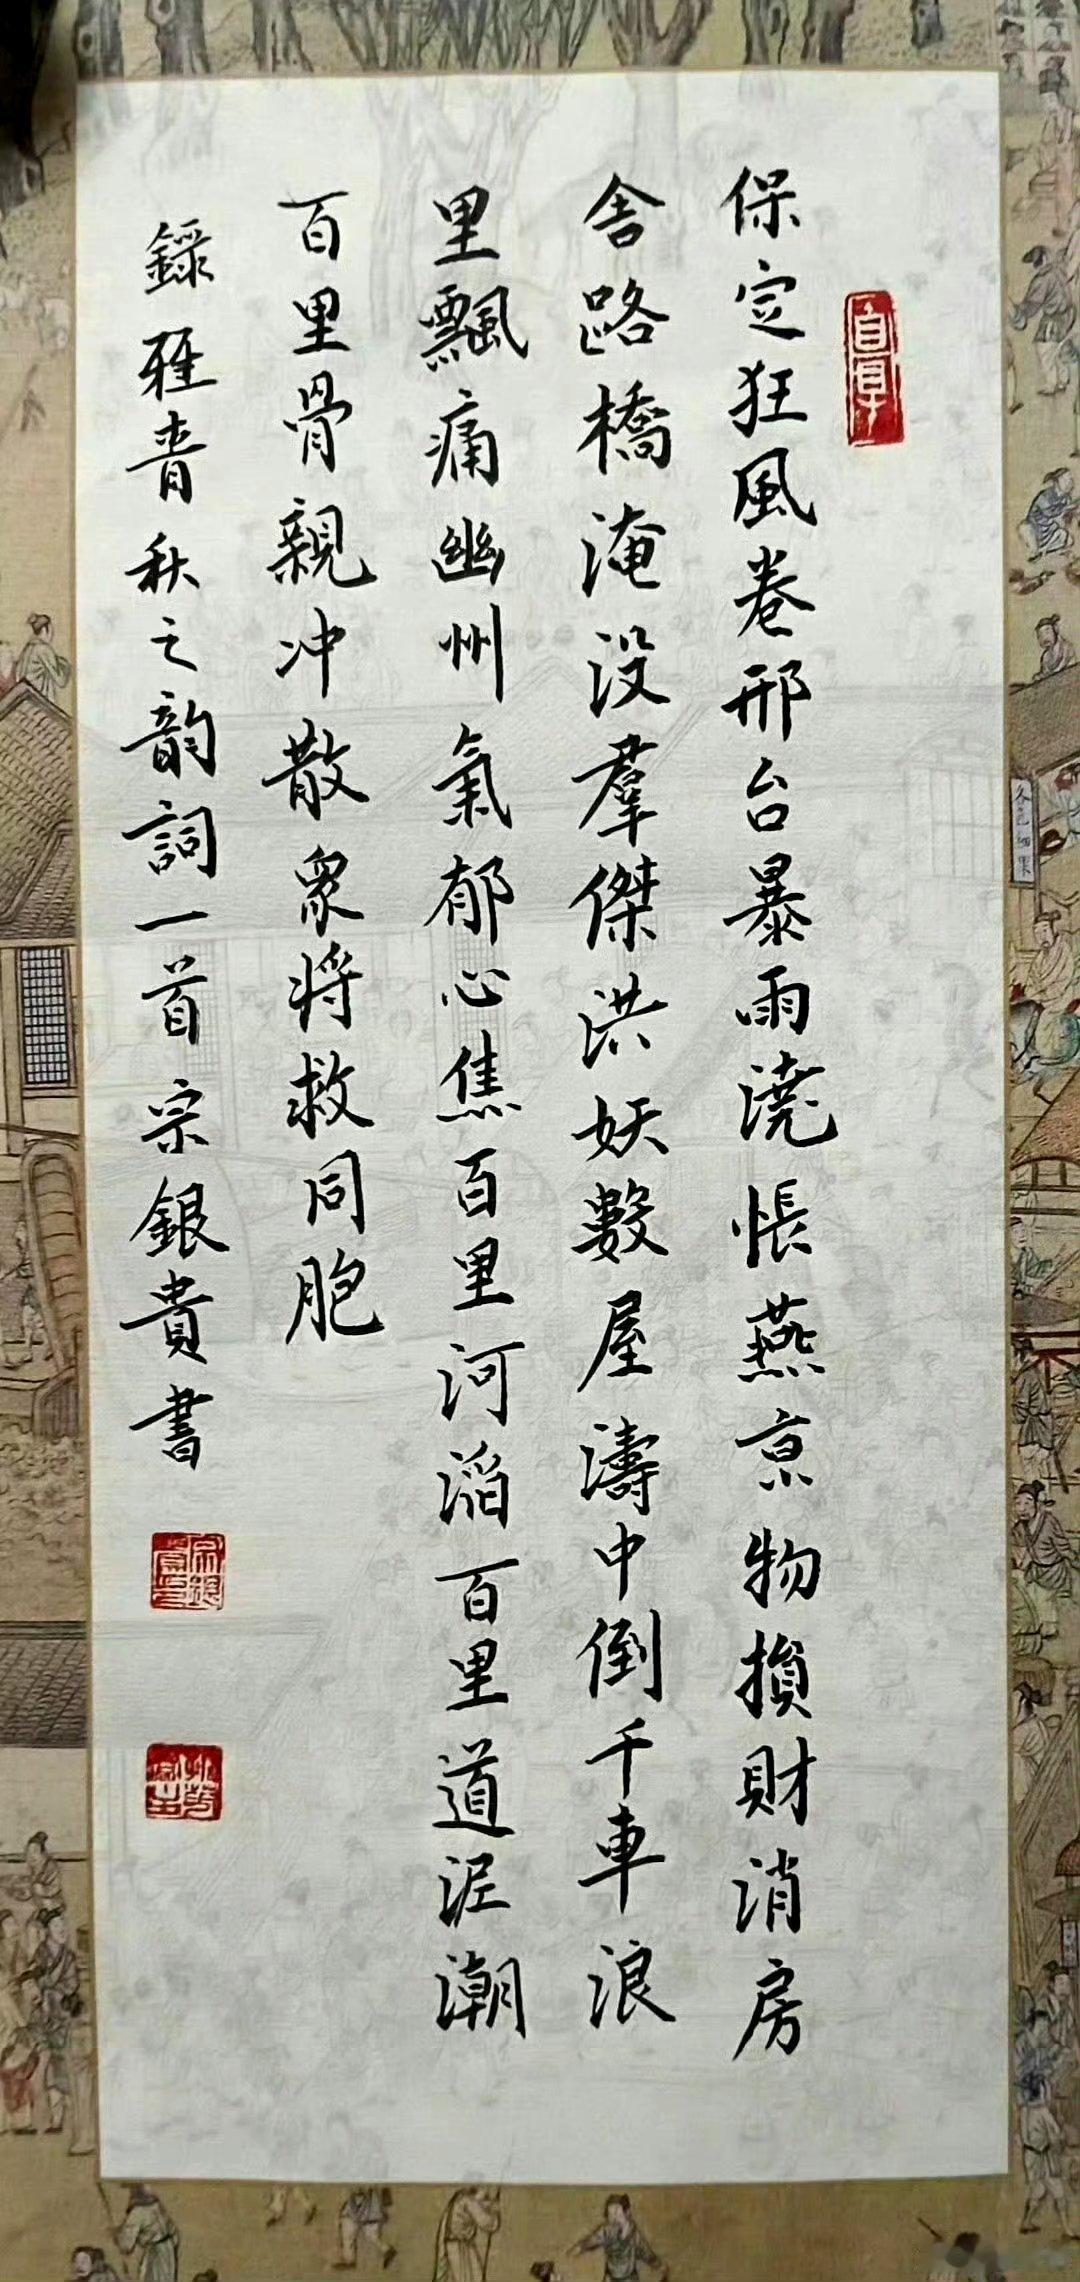 保定狂風卷邢台暴雨澆悵燕京物損財消房
舍路橋淹没羣傑洪妖數屋濤中倒千車浪
里飄痛幽州氣郁心焦百里河滔百里道泥潮
百里骨親冲散衆將救同胞
錄雅青秋之韵詞一首宗銀貴書